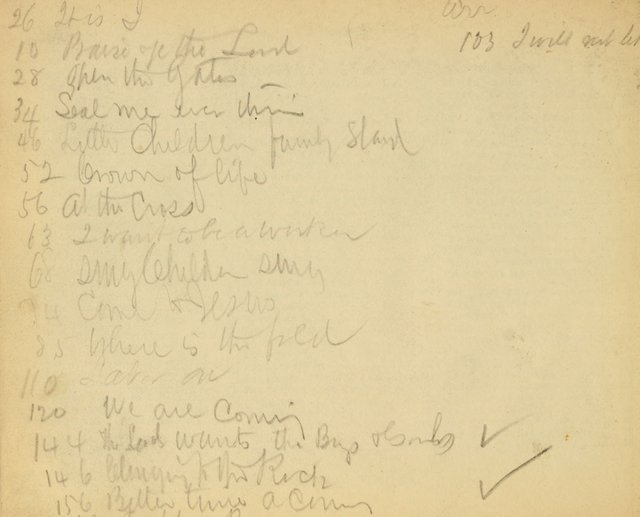 26 It is I
10 Praise the Lord
28 Open the Gates
34 Seal me ever thine
46 Little Children Stand
52 Crown of life
56 At the Cross
63 I want to be a worker
68 Sing Children Sing
Come to Jesus
85 Where is the fold
110 Labor on
120 We are Coming
144 The Lord wants the Boys & Girls ✓
146 Clinging to the Rock ✓
156 Better times a Coming
103 I will not let